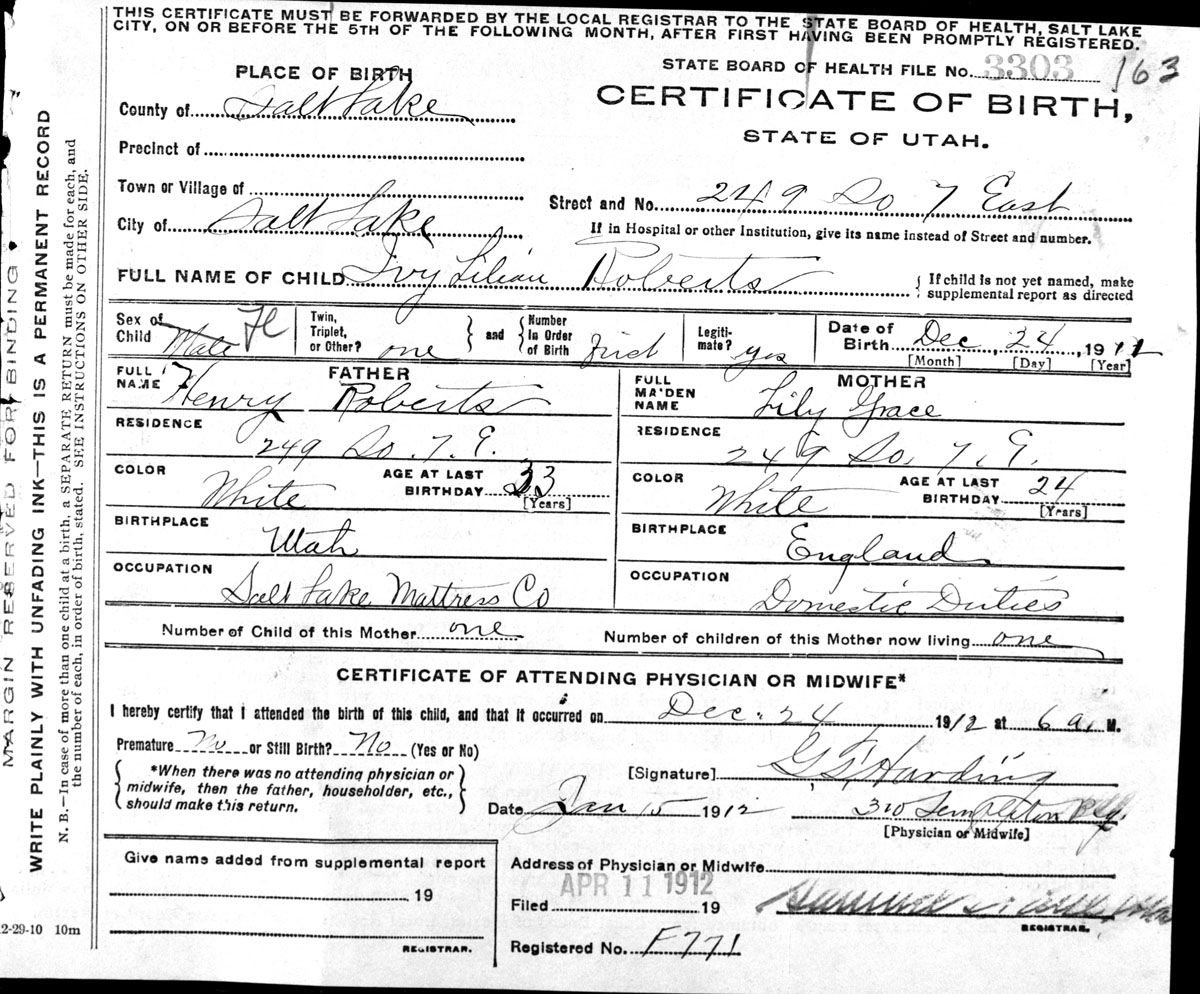 THIS CERTIFICATE MUST BE FORWARDED BY THE LOCAL REGISTRAR TO THE STATE BOARD OF HEALTH, SALT LAKE
CITY, ON OR BEFORE THE 5TH OF THE FOLLOWING MONTH, AFTER FIRST HAVING BEEN PROMPTLY REGISTERED.
MARGIN RESERVED FOR BINDING
WRITE PLAINLY WITH UNFADING INK—THIS IS A PERMANENT RECORD
N. B.—In case of more than one child at a birth, a SEPARATE RETURN must be made for each, and
the number of each, in order of birth, stated. SEE INSTRUCTIONS ON OTHER SIDE.
STATE BOARD OF HEALTH FILE No. 3303 163
PLACE OF BIRTH
CERTIFICATE OF BIRTH,
STATE OF UTAH.
County of Salt Lake
Precinct of
Town or Village of
Street and No. 249 So 7 East
City of Salt Lake
If in Hospital or other Institution, give its name instead of Street and number.
FULL NAME OF CHILD Ivy Lilian Roberts
If child is not yet named, make
supplemental report as directed
Sex of Child Male Fe
Twin, Triplet, or Other? one
and
Number In Order of Birth first
Legitimate? yes
Date of Birth Dec 24, 1911
[Month] [Day] [Year]
FATHER
FULL NAME Henry Roberts
MOTHER
FULL MAIDEN NAME Lily Grace
RESIDENCE 249 So. 7. E.
RESIDENCE 249 So. 7. E.
COLOR White
AGE AT LAST BIRTHDAY 33
[Years]
COLOR White
AGE AT LAST BIRTHDAY 24
[Years]
BIRTHPLACE Utah
BIRTHPLACE England
OCCUPATION Salt Lake Mattress Co
OCCUPATION Domestic Duties
Number of Child of this Mother one
Number of children of this Mother now living one
CERTIFICATE OF ATTENDING PHYSICIAN OR MIDWIFE*
I hereby certify that i attended the birth of this child, and that it occured on Dec. 24 1912 at 6 a. M.
Premature No or Still Birth? No (Yes or No)
*When there was no attending physician or
midwife, then the father, householder, etc.,
should make this return.
[Signature] Harding
Date Jan 15 1912
310 Templeton Bldg.
[Physician or Midwife]
Give name added from supplemental report
19
REGISTRAR.
Address of Physician or Midwife
APR 11 1912
Filed 19
REGISTRAR.
Registered No. F771
2-29-10 10m